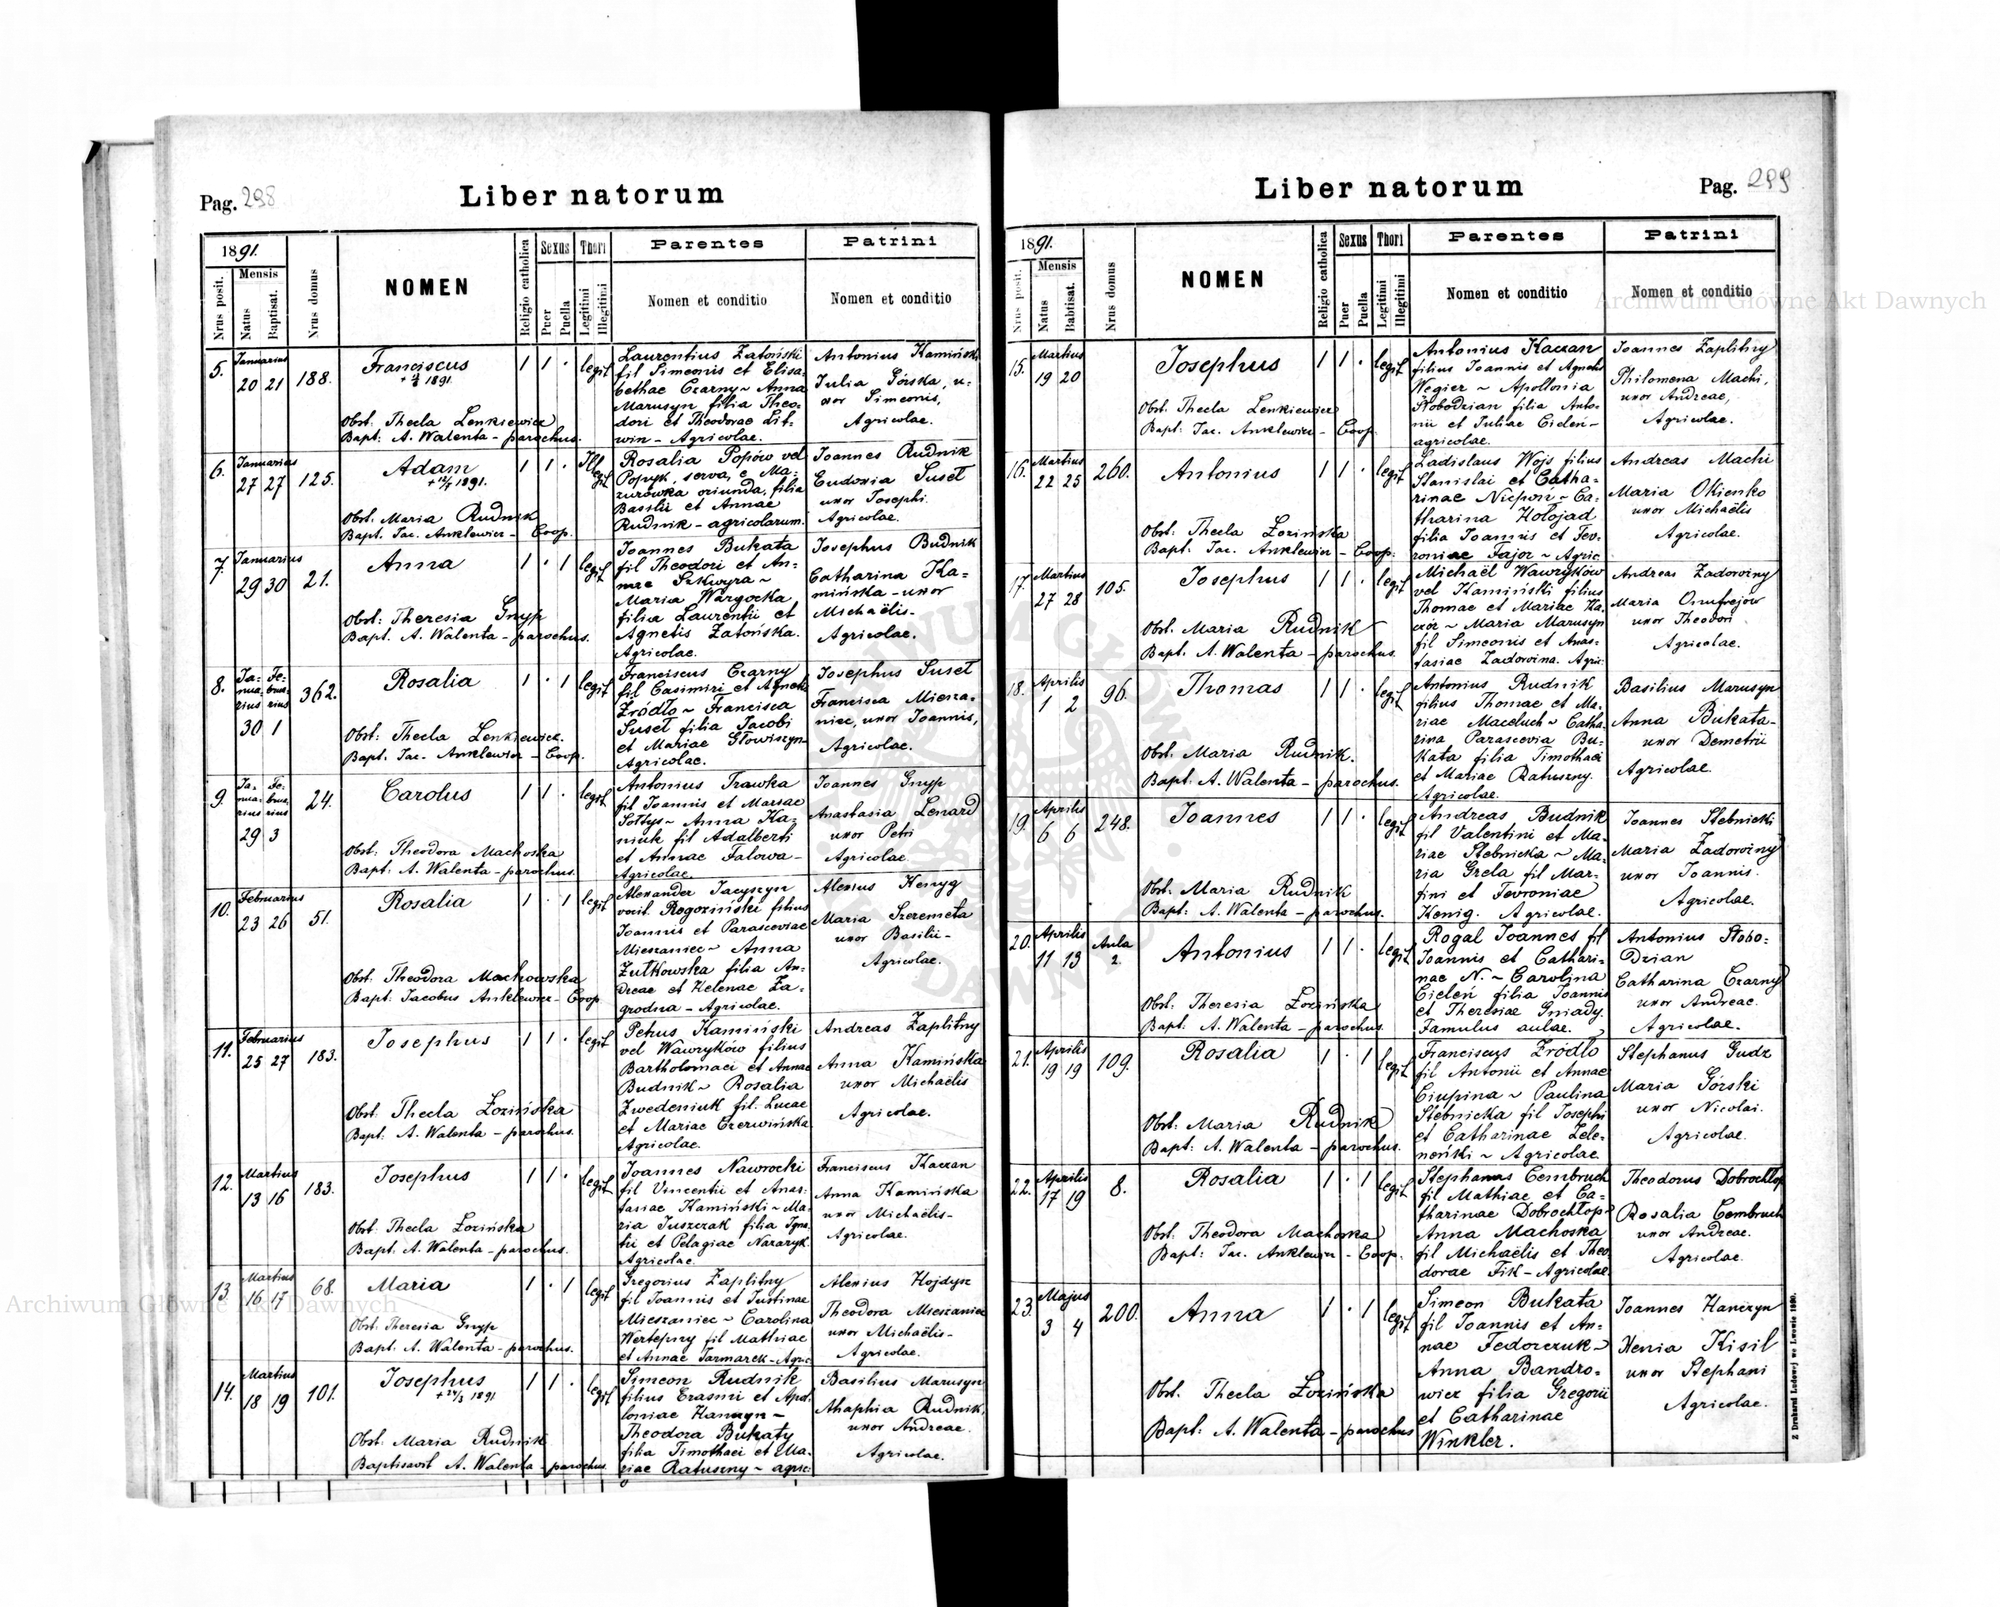 Pag. 298
Liber natorum
1891.
Mensis
Nrus posit.
Natus
Baptisat.
Nrus domus
NOMEN
Religio catholica
Sexus
Puer
Puella
Thori
Legitimi
Illegitimi
Parentes
Nomen et conditio
Patrini
Nomen et conditio
5. Januarius 20 21 188. Franciscus 1 1 · legit
1891.
Obst: Thecla Lenkiewicz
Bapt: A. Walenta - parochus.
Laurentius Zatoński
fil Simeonis et Elisa-
bethae Czarny ~ Anna
Marusyn filia Theo-
dori et Theodorae Lit-
win - Agricolae.
Antonius Kamiński
Julia Górska, u-
xor Simeonis,
Agricolae.
6. Januarius 27 27 125. Adam 1 1 · Illegit
1891.
Obst: Maria Rudnik
Bapt. Jac. Anklewicz - Coop.
Rosalia Popów vel
Popyk, serva, e Ma-
zurówka oriunda, filia
Basilii et Annae
Rudnik - agricolarum.
Joannes Rudnik
Eudoxia Suset
uxor Josephi.
Agricolae.
7. Januarius 29 30 21. Anna 1 · 1 legit
Obst: Theresia Gnyp
Bapt. A. Walenta - parochus.
Joannes Bukata
fil Theodori et An-
nae Szkwyra ~
Maria Wargocka
filia Laurentii et
Agnetis Zatońska.
Agricolae.
Josephus Budnik
Catharina Ka-
mińska - uxor
Michaëlis -
Agricolae.
8. Ja- nua- rius Fe- brua- rius 30 1 362. Rosalia 1 · 1 legit
Obst: Thecla Lenkiewicz.
Bapt: Jac. Anklewicz - Coop.
Franciscus Czarny
fil Casimiri et Agnetis
Źródło ~ Francisca
Suset filia Jacobi
et Mariae Głowiszyn
Agricolae.
Josephus Suset
Francisca Miesza-
niec, uxor Joannis,
Agricolae.
9. Ja- nua- rius Fe- brua- rius 29 3 24. Carolus 1 1 · legit
Obst: Theodora Machoska
Bapt: A. Walenta - parochus.
Antonius Trawka
fil Joannis et Mariae
Sołtys ~ Anna Ka-
niuk fil Adalberti
et Annae Falowa -
Agricolae
Joannes Gnyp
Anastasia Lenard
uxor Petri
Agricolae
10. Februarius 23 26 51. Rosalia 1 · 1 legit
Obst: Theodora Machowska
Bapt: Jacobus Anklewicz - Coop
Alexander Jacyszyn
vocit. Rogoziński filius
Joannis et Parasceviae
Mieszaniec ~ Anna
Żutkowska filia An-
dreae et Helenae Za-
grodna - Agricolae.
Alexius Kenyg
Maria Szeremeta
uxor Basilii -
Agricolae.
11. Februarius 25 27 183. Josephus 1 1 · legit
Obst: Thecla Łozińska
Bapt: A. Walenta - parochus.
Petrus Kamiński
vel Wawryków filius
Bartholomaei et Annae
Budnik ~ Rosalia
Zwedeniuk fil. Lucae
et Mariae Czerwińska
Agricolae.
Andreas Zaplitny
Anna Kamińska
uxor Michaëlis
Agricolae.
12. Martius 13 16 183. Josephus 1 1 · legit
Obst. Thecla Łozińska
Bapt: A. Walenta - parochus.
Joannes Nawrocki
fil Vincentii et Anas-
tasiae Kamiński ~ Ma-
ria Juszczak filia Igna-
tii et Pelagiae Nazaryk.
Agricolae.
Franciscus Kaczan
Anna Kamińska
uxor Michaëlis -
Agricolae.
13 Martius 16 17 68. Maria 1 · 1 legit
Obst: Theresia Gnyp
Bapt: A. Walenta - parochus.
Gregorius Zaplitny
fil Joannis et Justinae
Mieszaniec ~ Carolina
Wertepny fil Mathiae
et Annae Jarmarek - Agric
Alexius Hojdysz
Theodora Mieszaniec
uxor Michaëlis -
Agricolae.
14. Martius 18 19 101. Josephus 1 1 · legit
1891
Obst: Maria Rudnik
Baptisavit A. Walenta - parochus.
Simeon Rudnik
filius Erasmi et Apol-
loniae Hanczyn -
Theodora Bukaty
filia Timothaei et Ma-
riae Ratuszny ~ agric:
Basilius Marusyn
Ahaphia Rudnik,
uxor Andreae.
Agricolae.
Liber natorum
Pag. 299
1891.
Mensis
Nrus posit.
Natus
Babtisat.
Nrus domus
NOMEN
Religio catholica
Sexus
Puer
Puella
Thori
Legitimi
Illegitimi
Parentes
Nomen et conditio
Patrini
Nomen et conditio
15. Martius 19 20 Josephus 1 1 · legit
Obst: Thecla Lenkiewicz
Bapt: Jac. Anklewicz - Coop.
Antonius Kaczan
filius Joannis et Agnetis
Węgier ~ Apollonia
Słobodzian filia Anto-
nii et Juliae Cieleń -
agricolae.
Joannes Zaplitny
Philomena Machi,
uxor Andreae,
Agricolae.
16. Martius 22 25 260. Antonius 1 1 · legit
Obst: Thecla Łozińska
Bapt: Jac. Anklewicz - Coop.
Ladislaus Wojs filius
Stanislai et Catha-
rinae Niepoń ~ Ca-
tharina Hołojad
filia Joannis et Fev-
roniae Fajor ~ Agric.
Andreas Machi
Maria Okienko
uxor Michaëlis
Agricolae.
17. Martius 27 28 105. Josephus 1 1 · legit
Obst: Maria Rudnik
Bapt: A. Walenta - parochus.
Michaël Wawryków
vel Kamiński filius
Thomae et Mariae Ka-
czór ~ Maria Marusyn
fil Simeonis et Anas-
tasiae Zadorożna. Agric.
Andreas Zadorożny
Maria Onufrejów
uxor Theodori
Agricolae.
18. Aprilis 1 2 96. Thomas 1 1 · legit
Obst: Maria Rudnik.
Bapt: A. Walenta - parochus.
Antonius Rudnik
filius Thomae et Ma-
riae Maceluch ~ Catha-
rina Parascevia Bu-
kata filia Timothaei
et Mariae Ratuszny.
Agricolae.
Basilius Marusyn
Anna Bukata -
uxor Demetrii
Agricolae.
19. Aprilis 6 6 248. Joannes 1 1 · legit
Obst: Maria Rudnik
Bapt: A. Walenta - parochus.
Andreas Budnik
fil Valentini et Ma-
riae Stebnicka ~ Ma-
ria Grela fil Mar-
tini et Fevroniae
Kenig. Agricolae.
Joannes Stebnicki
Maria Zadorożny
uxor Joannis.
Agricolae.
20. Aprilis 11 13 Aula 2. Antonius 1 1 · legit
Obst: Theresia Łozińska
Bapt: A. Walenta - parochus.
Rogal Joannes fil
Joannis et Cathari-
nae N. ~ Carolina
Cieleń filia Joannis
et Theresiae Gniady.
Famulus aulae.
Antonius Słobo-
dzian
Catharina Czarny
uxor Andreae.
Agricolae.
21. Aprilis 19 19 109. Rosalia 1 · 1 legit
Obst: Maria Rudnik
Bapt: A. Walenta - parochus.
Franciscus Źródło
fil Antonii et Annae
Ciupina ~ Paulina
Stebnicka fil Josephi
et Catharinae Zele-
neński ~ Agricolae
Stephanus Gudz
Maria Górski
uxor Nicolai.
Agricolae.
22. Aprilis 17 19 8. Rosalia 1 · 1 legit
Obst: Theodora Machoska
Bapt: Jac. Anklewicz - Coop.
Stephanus Cembruch
fil Mathiae et Ca-
tharinae Dobrochłop ~
Anna Machoska
fil Michaëlis et Theo
dorae Fik - Agricolae.
Theodorus Dobrochłop
Rosalia Cembruch
uxor Andreae.
Agricolae.
23. Majus 3 4 200. Anna 1 · 1 legit
Obst. Thecla Łozińska
Bapt: A. Walenta - parochus
Simeon Bukata
fil Joannis et An-
nae Fedorczuk ~
Anna Bandro-
wicz filia Gregorii
et Catharinae
Winkler.
Joannes Hanczyn
Xenia Kisil
uxor Stephani
Agricolae.
Z Drukarni Ludowej we Lwowie 1890.
Archiwum Główne Akt Dawnych
Archiwum Główne Akt Dawnych